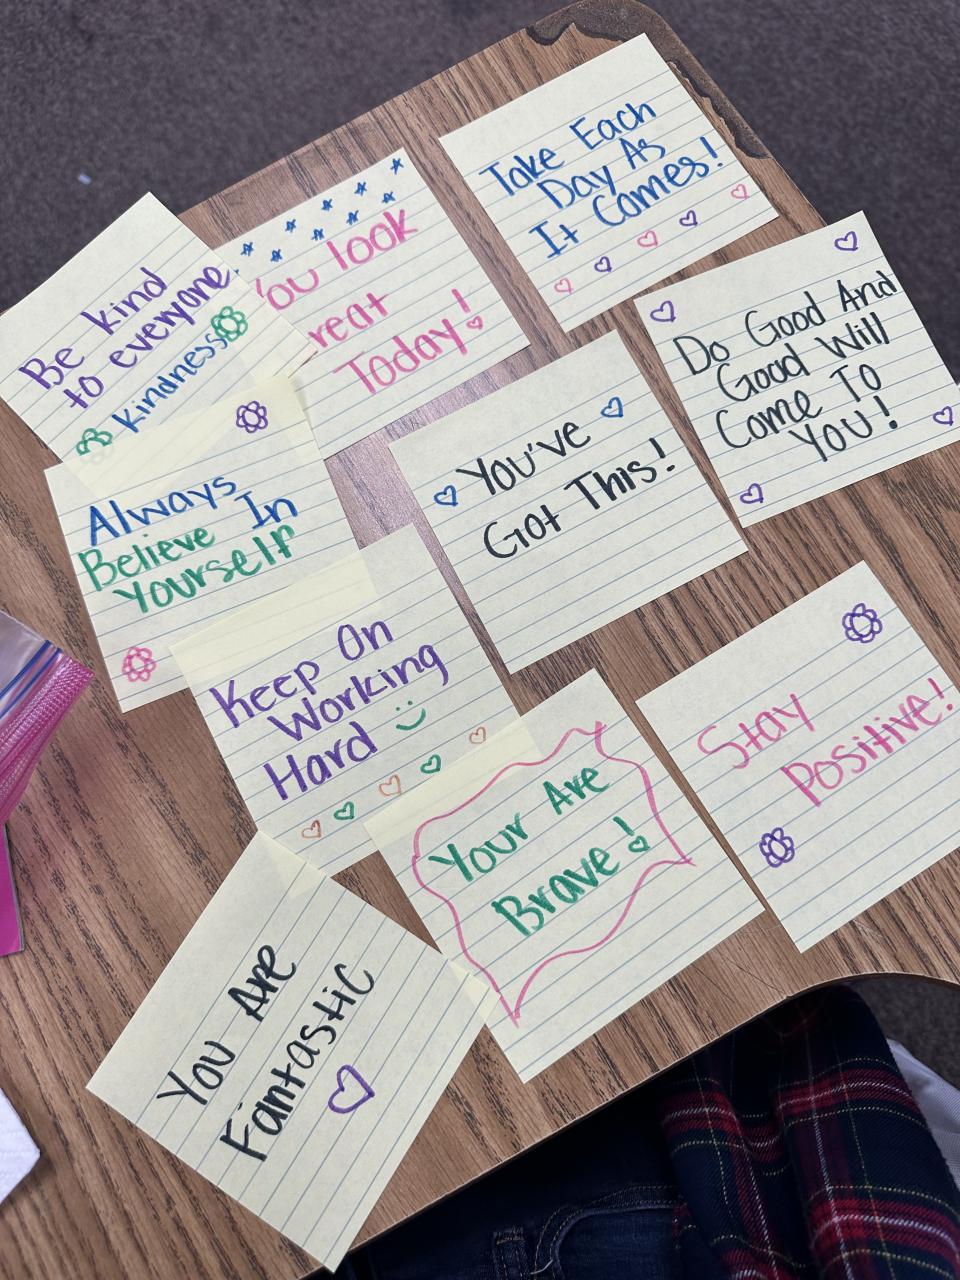 Take Each
Day As
It Comes!
You look
reat
Today!
Be kind
to everyone
Kindness
Do Good And
Good Will
Come To
You!
You've
Got This!
Always
Believe In
Yourself
Keep On
Working
Hard
Stay
Positive!
Your Are
Brave!
You Are
Fantastic